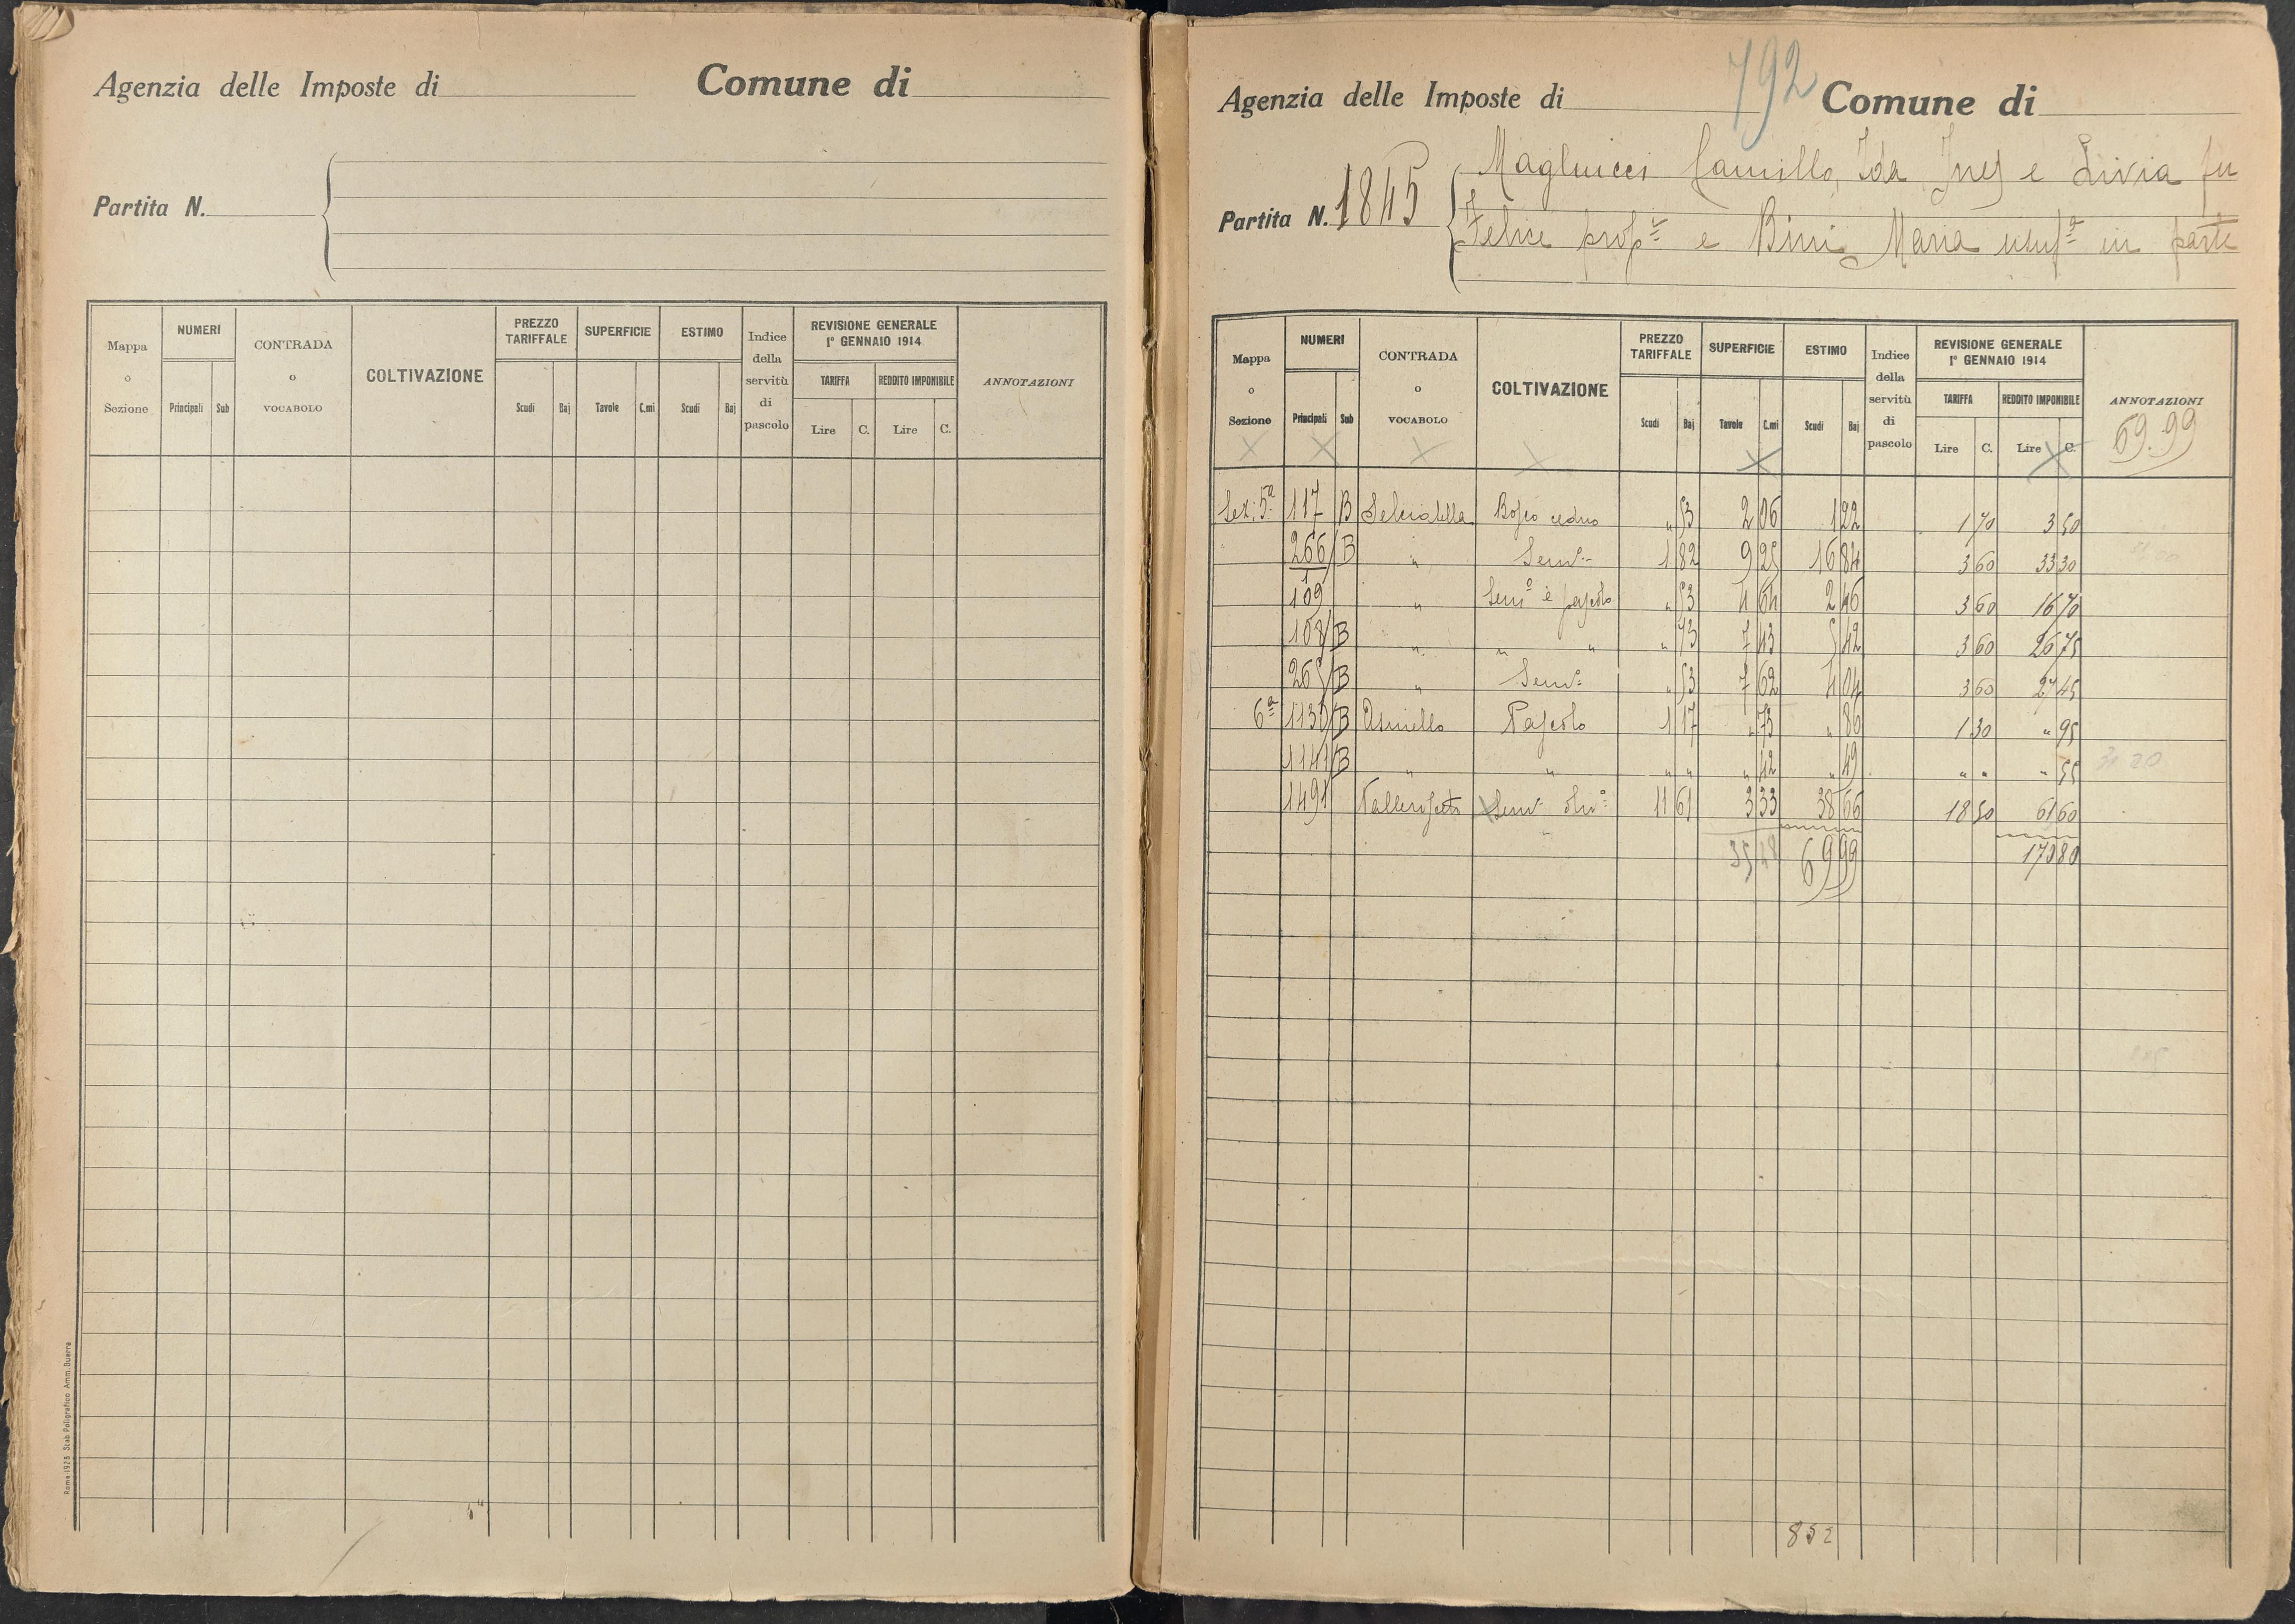 Agenzia delle Imposte di Comune di
Partita N.
Mappa o Sezione NUMERI Principali Sub CONTRADA o VOCABOLO COLTIVAZIONE PREZZO TARIFFALE Scudi Baj SUPERFICIE Tavole C.mi ESTIMO Scudi Baj Indice della servitù di pascolo REVISIONE GENERALE 1° GENNAIO 1914 TARIFFA Lire C. REDDITO IMPONIBILE Lire C. ANNOTAZIONI
Roma 1923 Stab. Poligrafico Amm. Guerra
792
Agenzia delle Imposte di Comune di
Partita N. 1845
Camillo, Ida Ines e Livia fu
Felice prop.ri e Bini Maria usuf.a in parte
Mappa o Sezione NUMERI Principali Sub CONTRADA o VOCABOLO COLTIVAZIONE PREZZO TARIFFALE Scudi Baj SUPERFICIE Tavole C.mi ESTIMO Scudi Baj Indice della servitù di pascolo REVISIONE GENERALE 1° GENNAIO 1914 TARIFFA Lire C. REDDITO IMPONIBILE Lire C. ANNOTAZIONI
69.99
Sez. 5a 117 B Selciatella Bosco ceduo " 53 2 06 1 22 1 70 3 50
266/1 B " Sem.o 1 82 9 25 16 84 3 60 33 30
109 " Sem.o e pascolo " 53 4 64 2 46 3 60 16 70
108 B " " " " 73 7 43 5 42 3 60 26 75
265 B " Sem.o " 53 7 62 4 04 3 60 27 45
6a 1130 B Asinello Pascolo 1 17 " 73 " 86 1 30 " 95
1141 B " " " " " 42 " 49 " " " 55
1491 Sem.o oliv.o 11 61 3 33 38 66 18 50 61 60
35 48 69 99 170 80
31 20
852